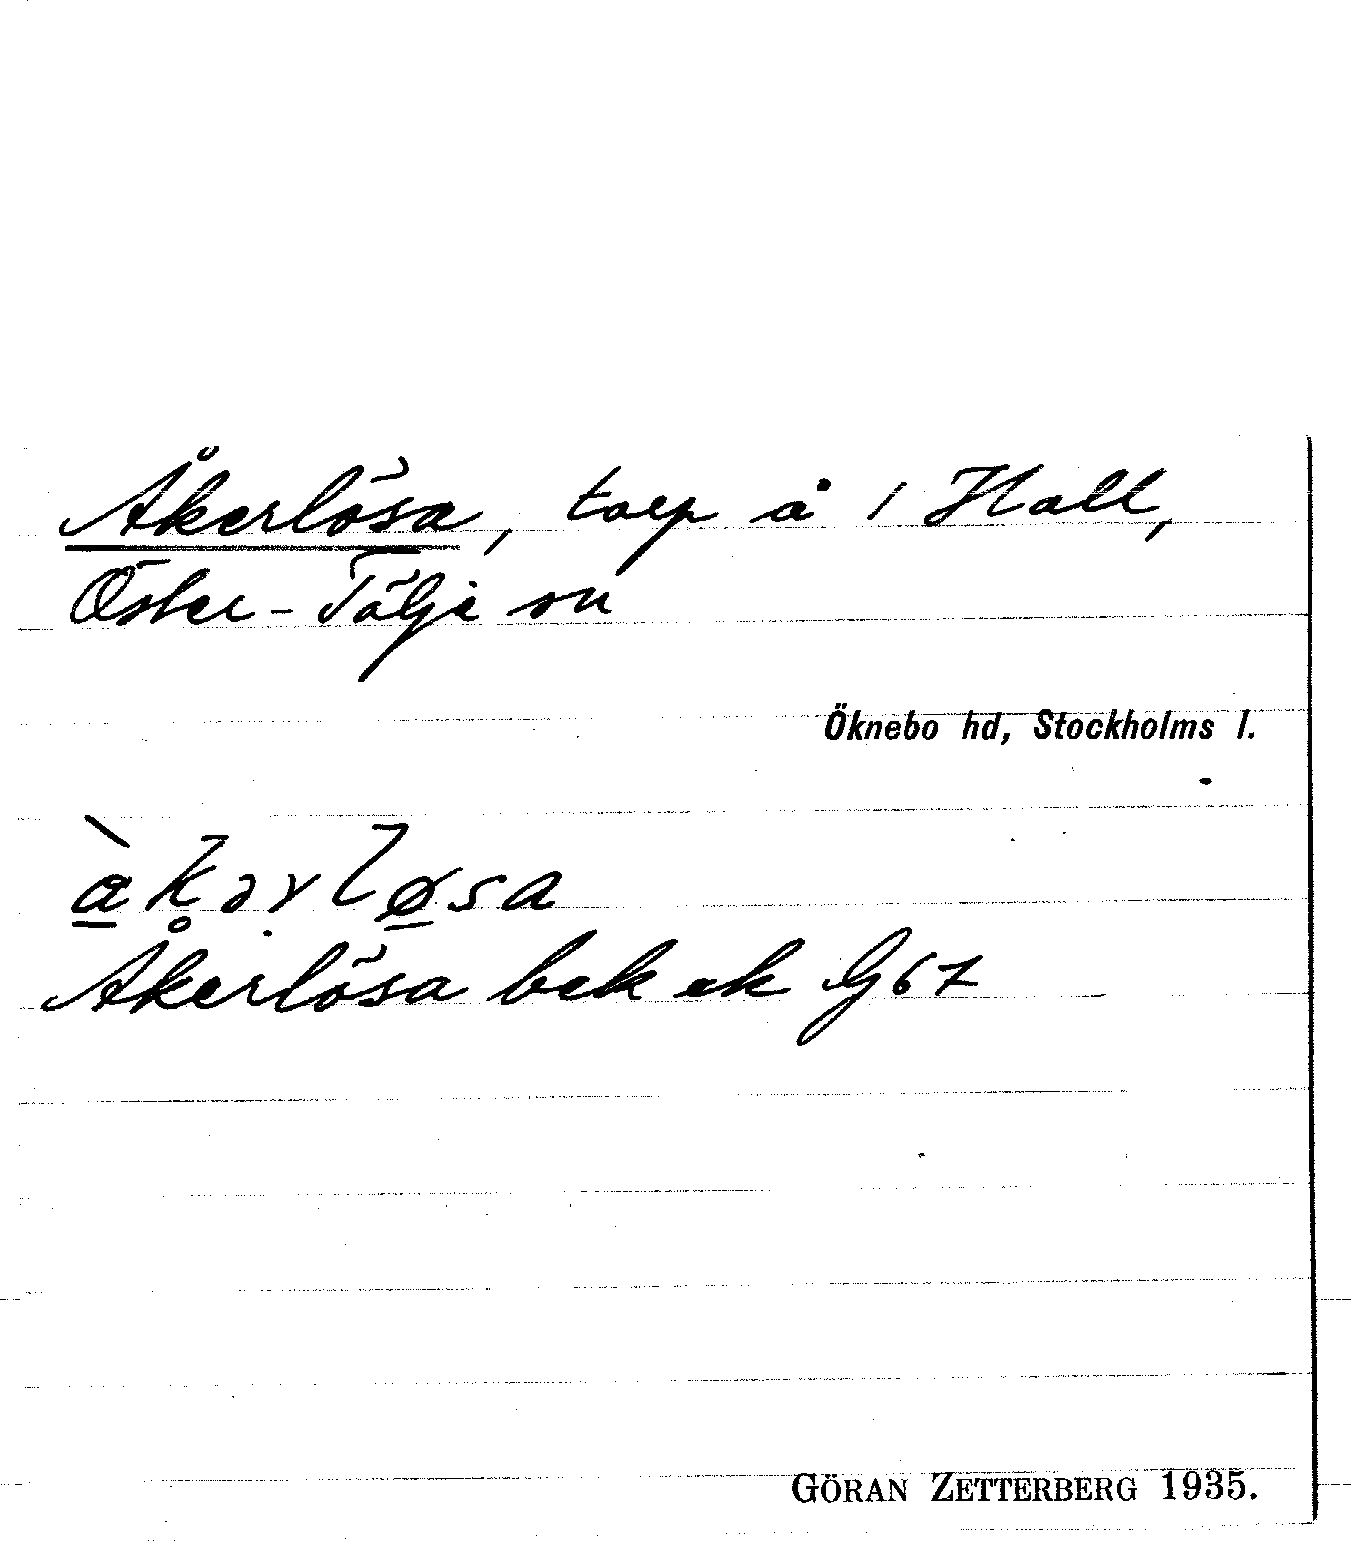 Åkerlösa, torp å 1 Hall,
Öster-Tälje sn
Öknebo hd, Stockholms l.
àkərløsa
Åkerlösa bek ek G67
GÖRAN ZETTERBERG 1935.